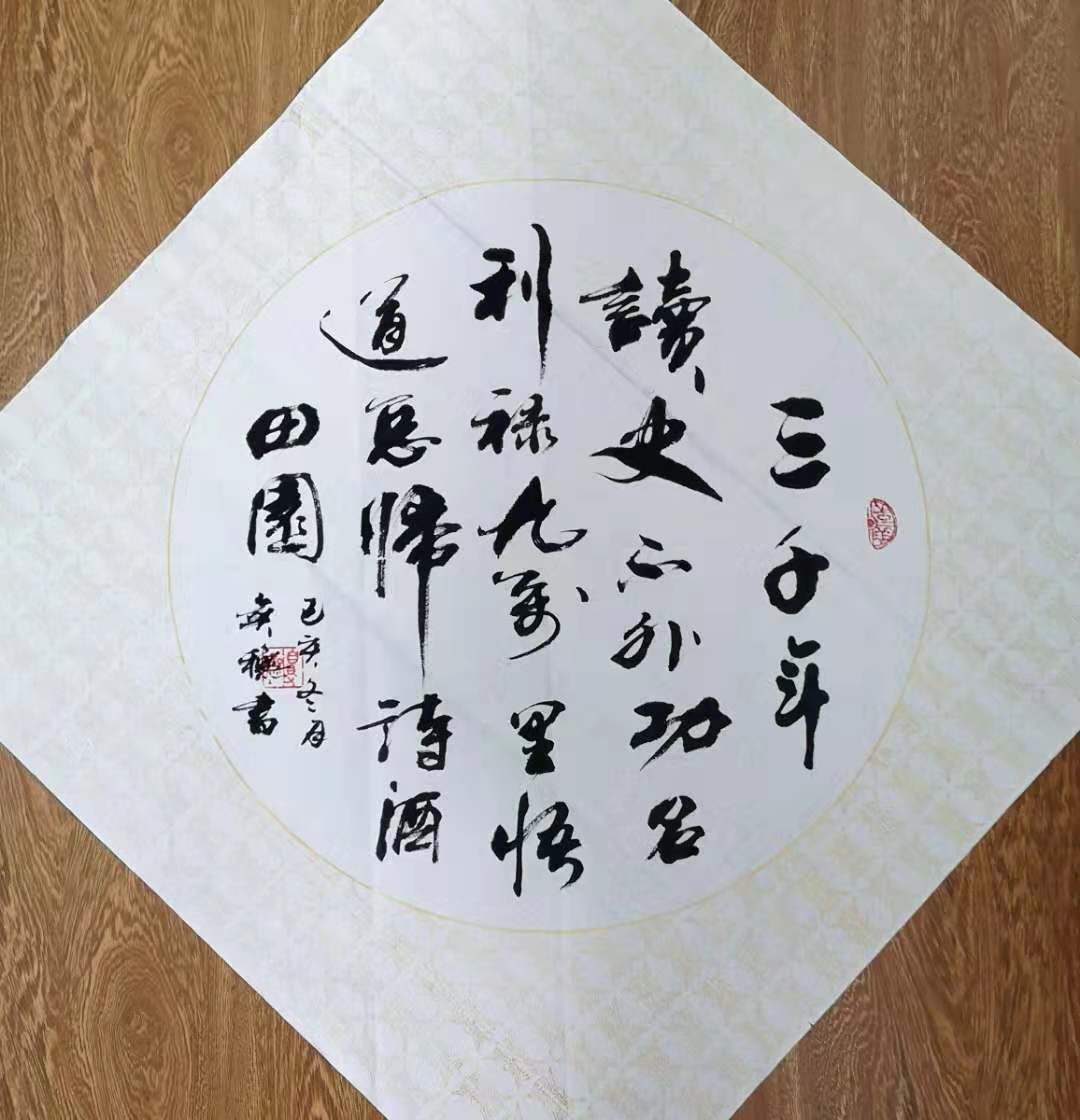 三千年
讀史不外功名
利禄九萬里悟
道总帰詩酒
田園
己亥冬月
書